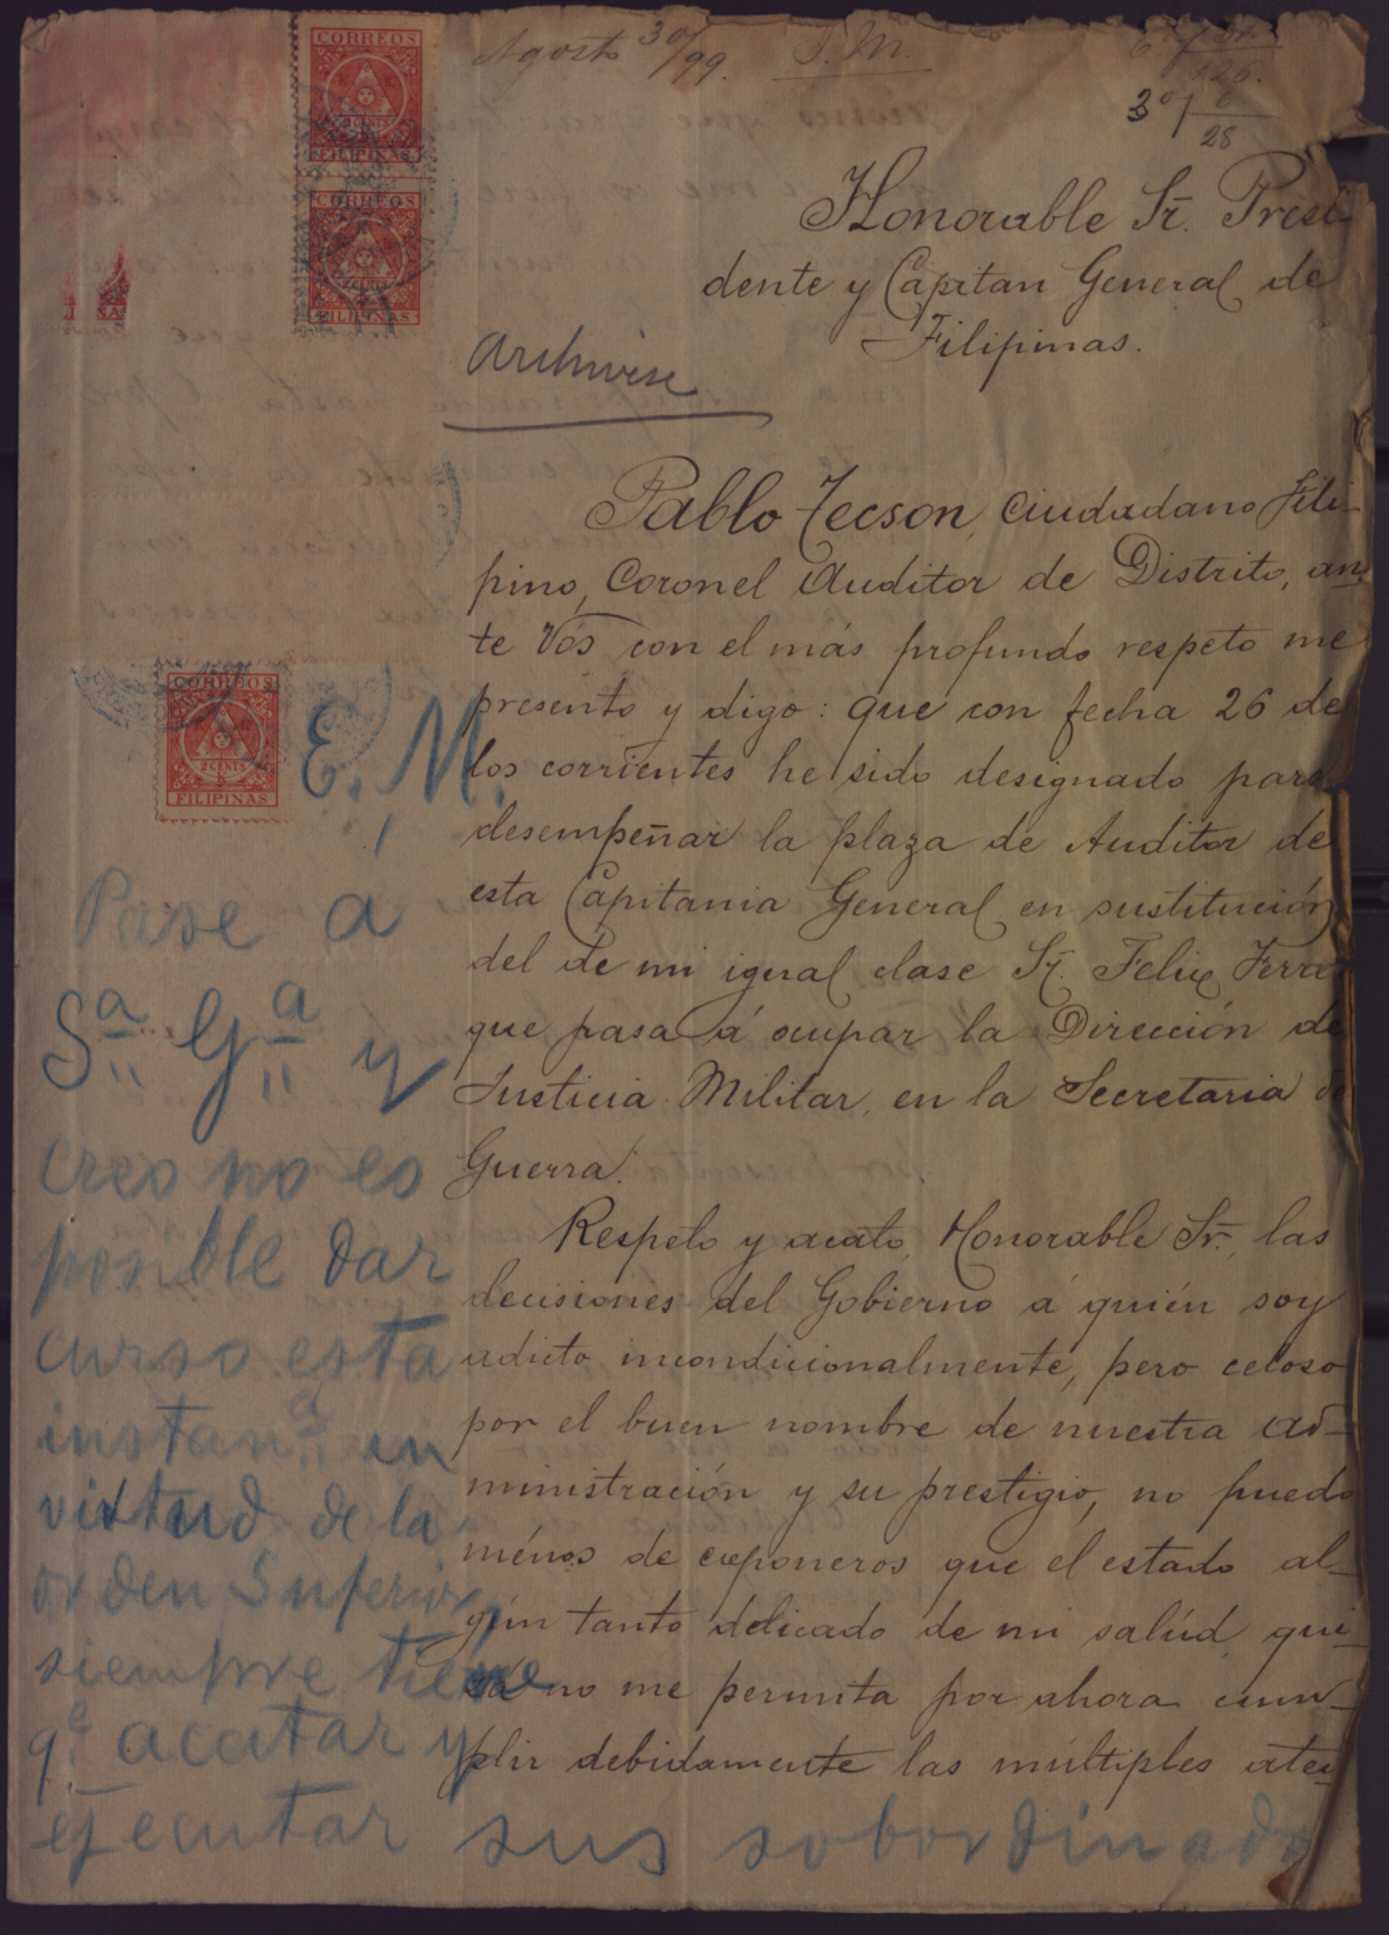 Agosto 30/99. J. M.
126.
28
CORREOS
FILIPINAS
CORREOS
FILIPINAS
Honorable Sr. Presi-
dente y Capitan General de
Filipinas.
Archivese
Pablo Tecson, Ciudadano Fili-
pino, Coronel Auditor de Distrito, an-
te Vós con el más profundo respeto me
presento y digo: que con fecha 26 de
los corrientes he sido designado para
desempeñar la plaza de Auditor de
esta Capitania General en sustitución
del de mi igual clase Sr. Felix Ferrer
que pasa á ocupar la Dirección de
Justicia Militar, en la Secretaria de
Guerra.
Respeto y acato, Honorable Sr., las
decisiones del Gobierno á quién soy
adicto incondicionalmente, pero celoso
por el buen nombre de nuestra ad-
ministración y su prestigio, no puedo
ménos de exponeros que el estado al-
gún tanto delicado de mi salúd qui-
zá no me permita por ahora cum-
plir debidamente las múltiples aten-
CORREOS
2 CENTS
FILIPINAS
E. M.
Pase á
Sª Gª y
creo no es
posible dar
curso esta
instanª en
virtud de la
orden Superior
siempre tiene
qe acatar y
ejecutar sus sobordinado